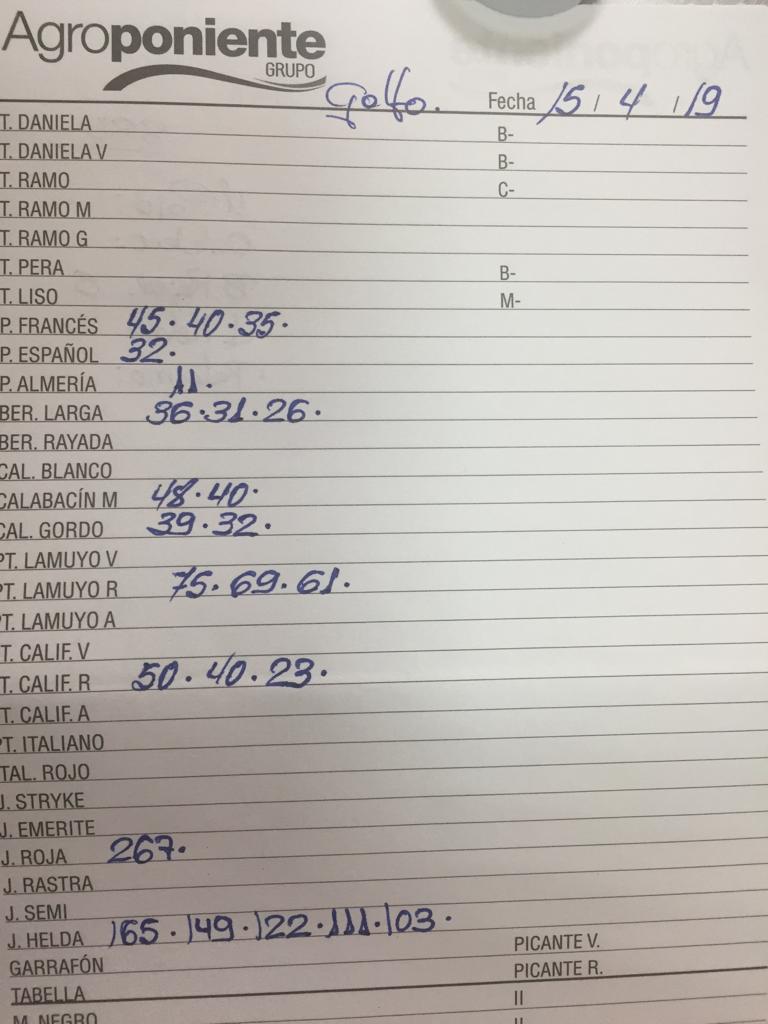 Agroponiente
GRUPO
Golfo. Fecha 15 / 4 / 19
T. DANIELA B-
T. DANIELA V B-
T. RAMO C-
T. RAMO M
T. RAMO G
T. PERA B-
T. LISO M-
P. FRANCÉS 45. 40. 35.
P. ESPAÑOL 32.
P. ALMERÍA 11.
BER. LARGA 36. 31. 26.
BER. RAYADA
CAL. BLANCO
CALABACÍN M 48. 40.
CAL. GORDO 39. 32.
PT. LAMUYO V
PT. LAMUYO R 75. 69. 61.
PT. LAMUYO A
T. CALIF. V
T. CALIF. R 50. 40. 23.
T. CALIF. A
PT. ITALIANO
TAL. ROJO
J. STRYKE
J. EMERITE
J. ROJA 267.
J. RASTRA
J. SEMI
J. HELDA 165. 149. 122. 111. 103.
GARRAFÓN PICANTE V.
TABELLA PICANTE R.
M. NEGRO II
II